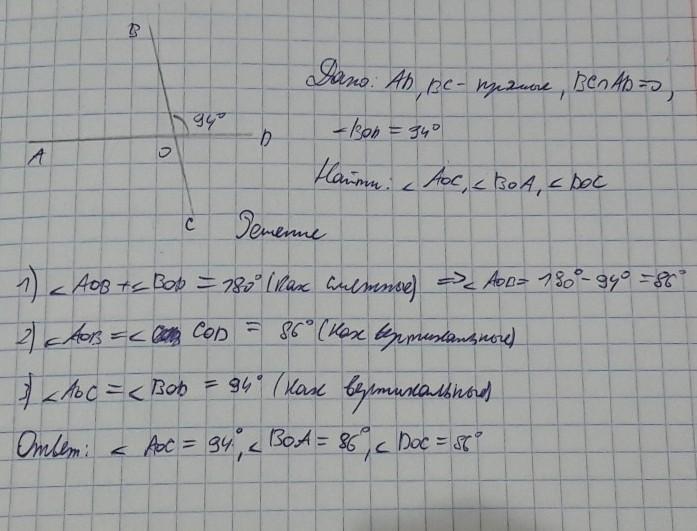 B
94°
A
O
D
C
Дано: AD, BC - прямые, BC∩AD=O,
∠BOD = 94°
Найти: ∠AOC, ∠BOA, ∠DOC
Решение
1) ∠AOB + ∠BOD = 180° (как смежные) => ∠AOB = 180° - 94° = 86°
2) ∠AOB = ∠ COD = 86° (как вертикальные)
3) ∠AOC = ∠BOD = 94° (как вертикальные)
Ответ: ∠ AOC = 94°, ∠BOA = 86°, ∠DOC = 86°